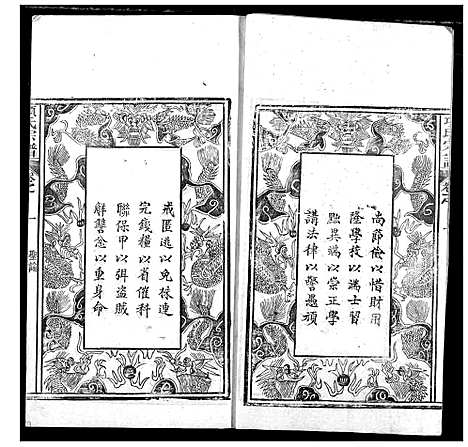 尚節儉以惜財用
隆學校以端士習
黜異端以崇正學
講法律以警愚頑
項氏宗譜
聖諭
戒匿逃以免株連
完錢糧以省催科
聯保甲以弭盜賊
解讐忿以重身命